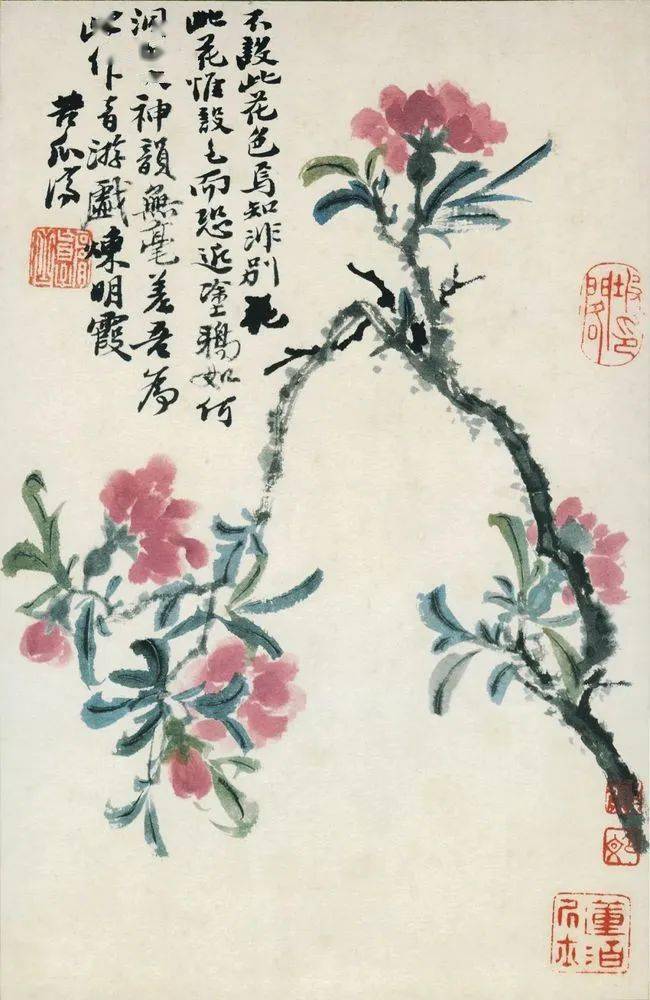 不設此花色焉知非別花
此花惟設色而恐近塗鴉如何
神韻無毫差吾為
此游戲煉明霞
苦瓜濟